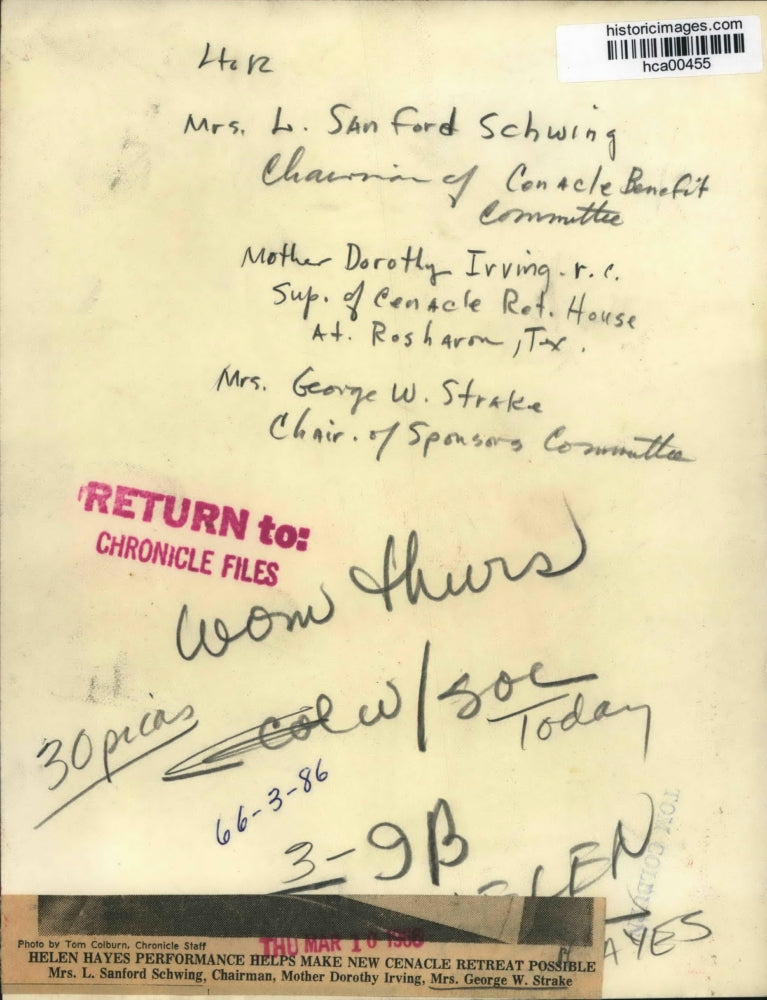 historicimages.com
hca00455
L to R
Mrs. L. Sanford Schwing
Chairman of Cenacle Benefit
Committee
Mother Dorothy Irving. r.c.
Sup. of Cenacle Ret. House
At. Rosharon, Tex.
Mrs. George W. Strake
Chair. of Sponsors Committee
RETURN to:
CHRONICLE FILES
wom thurs
30 picas
col w/ soc
Today
66-3-86
3-9B
HELEN
HAYES
TOM COLBURN
THU MAR 10 1966
Photo by Tom Colburn, Chronicle Staff
HELEN HAYES PERFORMANCE HELPS MAKE NEW CENACLE RETREAT POSSIBLE
Mrs. L. Sanford Schwing, Chairman, Mother Dorothy Irving, Mrs. George W. Strake